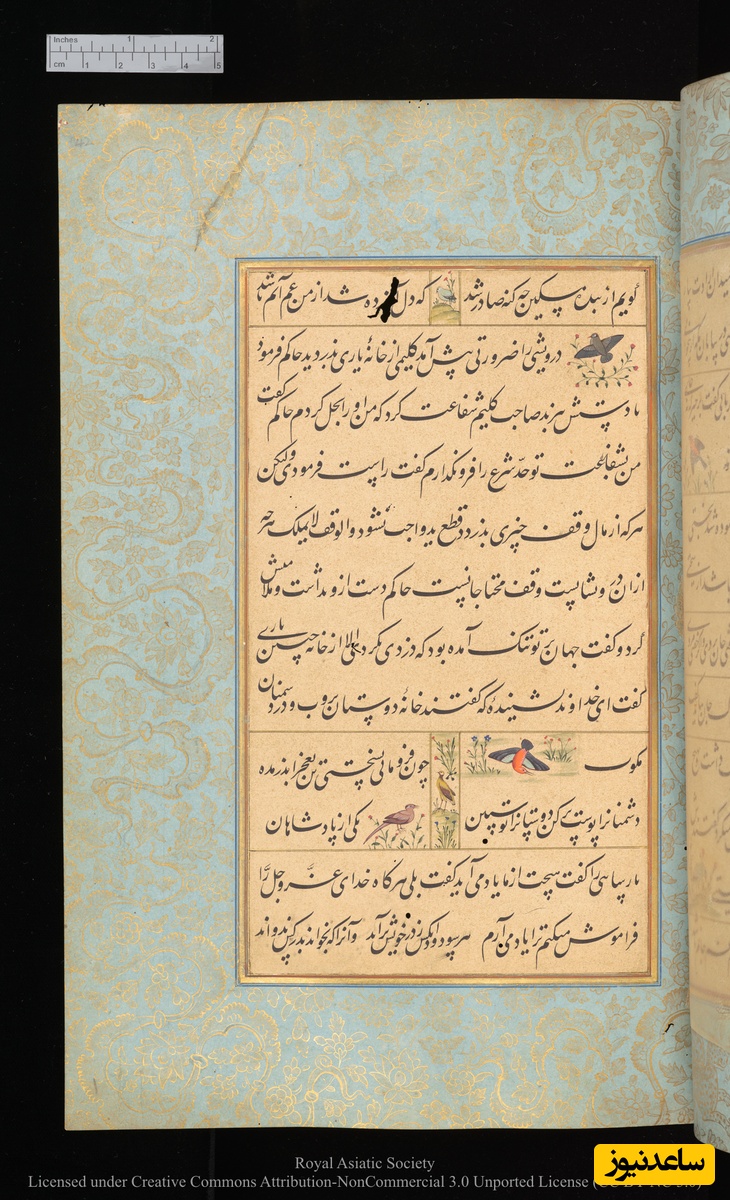 Inches 1 2
cm 1 2 3 4 5
گویم از بنده مسکین چه گنه صادر شد که دل آزرده شد از من غمم آنم باشد
درویشی را ضرورتی پیش آمد گلیمی از خانهٔ یاری بدزدید حاکم فرمود
تا دستش ببرند صاحب گلیم شفاعت کرد که من او را بحل کردم حاکم گفت
من بشفاعت تو حد شرع را فرو نگذارم گفت راست فرمودی ولیکن
هر که از مال وقف چیزی بدزدد قطع ید واجب نشود والوقف لایملک هر چه
از آن درویشانست وقف محتاجانست حاکم دست از و بداشت و ملامتش
کرد و گفت جهان بر تو تنگ آمده بود که دزدی نکردی الا از خانه چنین یاری
گفت ای خداوند نشنیدهٔ که گفتند خانهٔ دوستان بروب و در دشمنان
مکوب چون فرو مانی بسختی تن بعجز اندر مده
دشمنانرا پوست برکن دوستانرا پوستین یکی از پادشاهان
پارسایی را گفت هیچت از ما یاد می آید گفت بلی هرگاه خدای عز و جل را
فراموش میکنم ترا یاد می آرم هر سو دود آنکس ز در خویش براند وآنرا که بخواند بدر کس ندواند
Royal Asiatic Society
Licensed under Creative Commons Attribution-NonCommercial 3.0 Unported License
ساعدنیوز